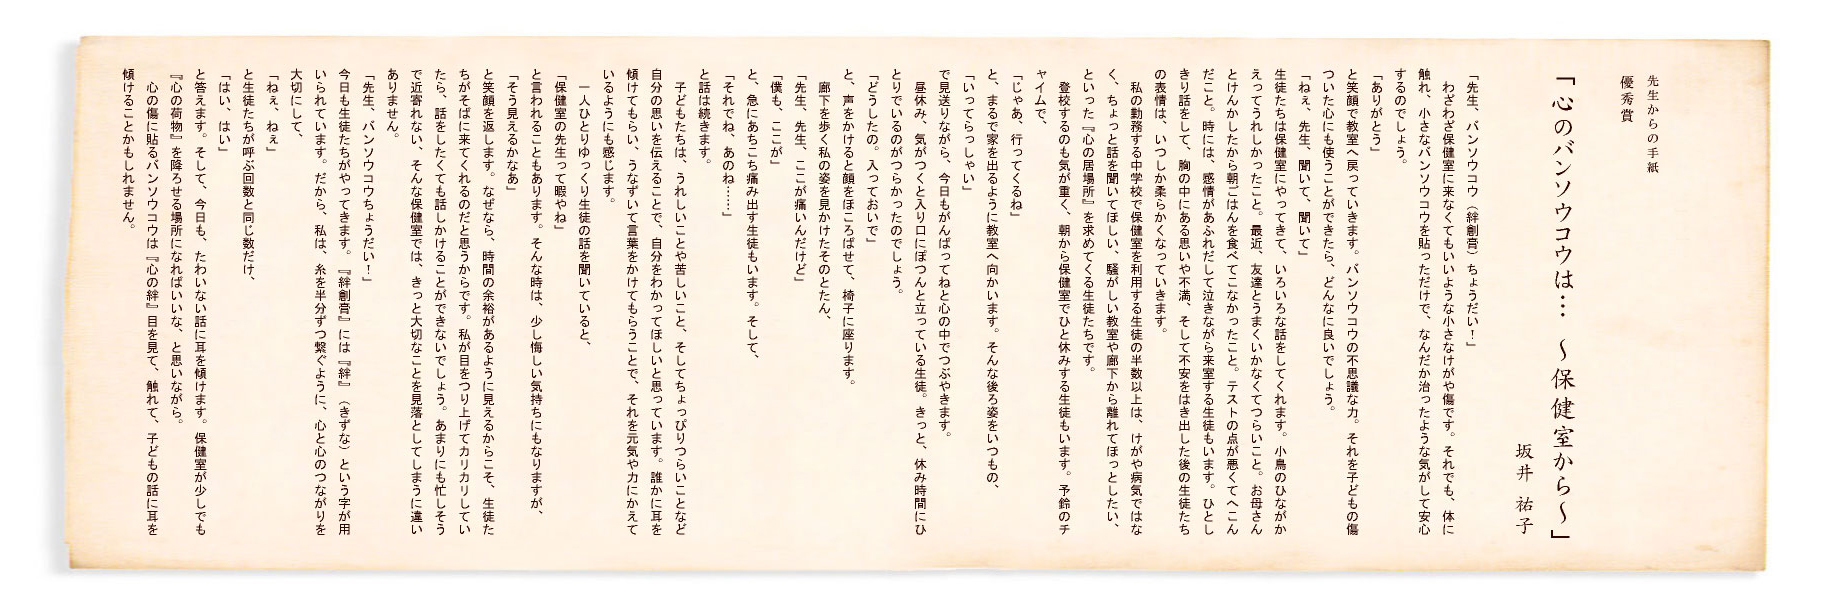 先生からの手紙
優秀賞
「心のバンソウコウは… ～保健室から～」
坂井 祐子
「先生、バンソウコウ（絆創膏）ちょうだい！」
わざわざ保健室に来なくてもいいような小さなけがや傷です。それでも、体に
触れ、小さなバンソウコウを貼っただけで、なんだか治ったような気がして安心
するのでしょう。
「ありがとう」
と笑顔で教室へ戻っていきます。バンソウコウの不思議な力。それを子どもの傷
ついた心にも使うことができたら、どんなに良いでしょう。
「ねぇ、先生、聞いて、聞いて」
生徒たちは保健室にやってきて、いろいろな話をしてくれます。小鳥のひながか
えってうれしかったこと。最近、友達とうまくいかなくてつらいこと。お母さん
とけんかしたから朝ごはんを食べてこなかったこと。テストの点が悪くてへこん
だこと。時には、感情があふれだして泣きながら来室する生徒もいます。ひとし
きり話をして、胸の中にある思いや不満、そして不安をはき出した後の生徒たち
の表情は、いつしか柔らかくなっていきます。
私の勤務する中学校で保健室を利用する生徒の半数以上は、けがや病気ではな
く、ちょっと話を聞いてほしい、騒がしい教室や廊下から離れてほっとしたい、
といった『心の居場所』を求めてくる生徒たちです。
登校するのも気が重く、朝から保健室でひと休みする生徒もいます。予鈴のチ
ャイムで、
「じゃあ、行ってくるね」
と、まるで家を出るように教室へ向かいます。そんな後ろ姿をいつもの、
「いってらっしゃい」
で見送りながら、今日もがんばってねと心の中でつぶやきます。
昼休み、気がつくと入り口にぽつんと立っている生徒。きっと、休み時間にひ
とりでいるのがつらかったのでしょう。
「どうしたの。入っておいで」
と、声をかけると顔をほころばせて、椅子に座ります。
廊下を歩く私の姿を見かけたそのとたん、
「先生、先生、ここが痛いんだけど」
「僕も、ここが」
と、急にあちこち痛み出す生徒もいます。そして、
「それでね、あのね……」
と話は続きます。
子どもたちは、うれしいことや苦しいこと、そしてちょっぴりつらいことなど
自分の思いを伝えることで、自分をわかってほしいと思っています。誰かに耳を
傾けてもらい、うなずいて言葉をかけてもらうことで、それを元気や力にかえて
いるようにも感じます。
一人ひとりゆっくり生徒の話を聞いていると、
「保健室の先生って暇やね」
と言われることもあります。そんな時は、少し悔しい気持ちにもなりますが、
「そう見えるかなあ」
と笑顔を返します。なぜなら、時間の余裕があるように見えるからこそ、生徒た
ちがそばに来てくれるのだと思うからです。私が目をつり上げてカリカリしてい
たら、話をしたくても話しかけることができないでしょう。あまりにも忙しそう
で近寄れない、そんな保健室では、きっと大切なことを見落としてしまうに違い
ありません。
「先生、バンソウコウちょうだい！」
今日も生徒たちがやってきます。『絆創膏』には『絆』（きずな）という字が用
いられています。だから、私は、糸を半分ずつ繋ぐように、心と心のつながりを
大切にして、
「ねぇ、ねぇ」
と生徒たちが呼ぶ回数と同じ数だけ、
「はい、はい」
と答えます。そして、今日も、たわいない話に耳を傾けます。保健室が少しでも
『心の荷物』を降ろせる場所になればいいな、と思いながら。
心の傷に貼るバンソウコウは『心の絆』目を見て、触れて、子どもの話に耳を
傾けることかもしれません。